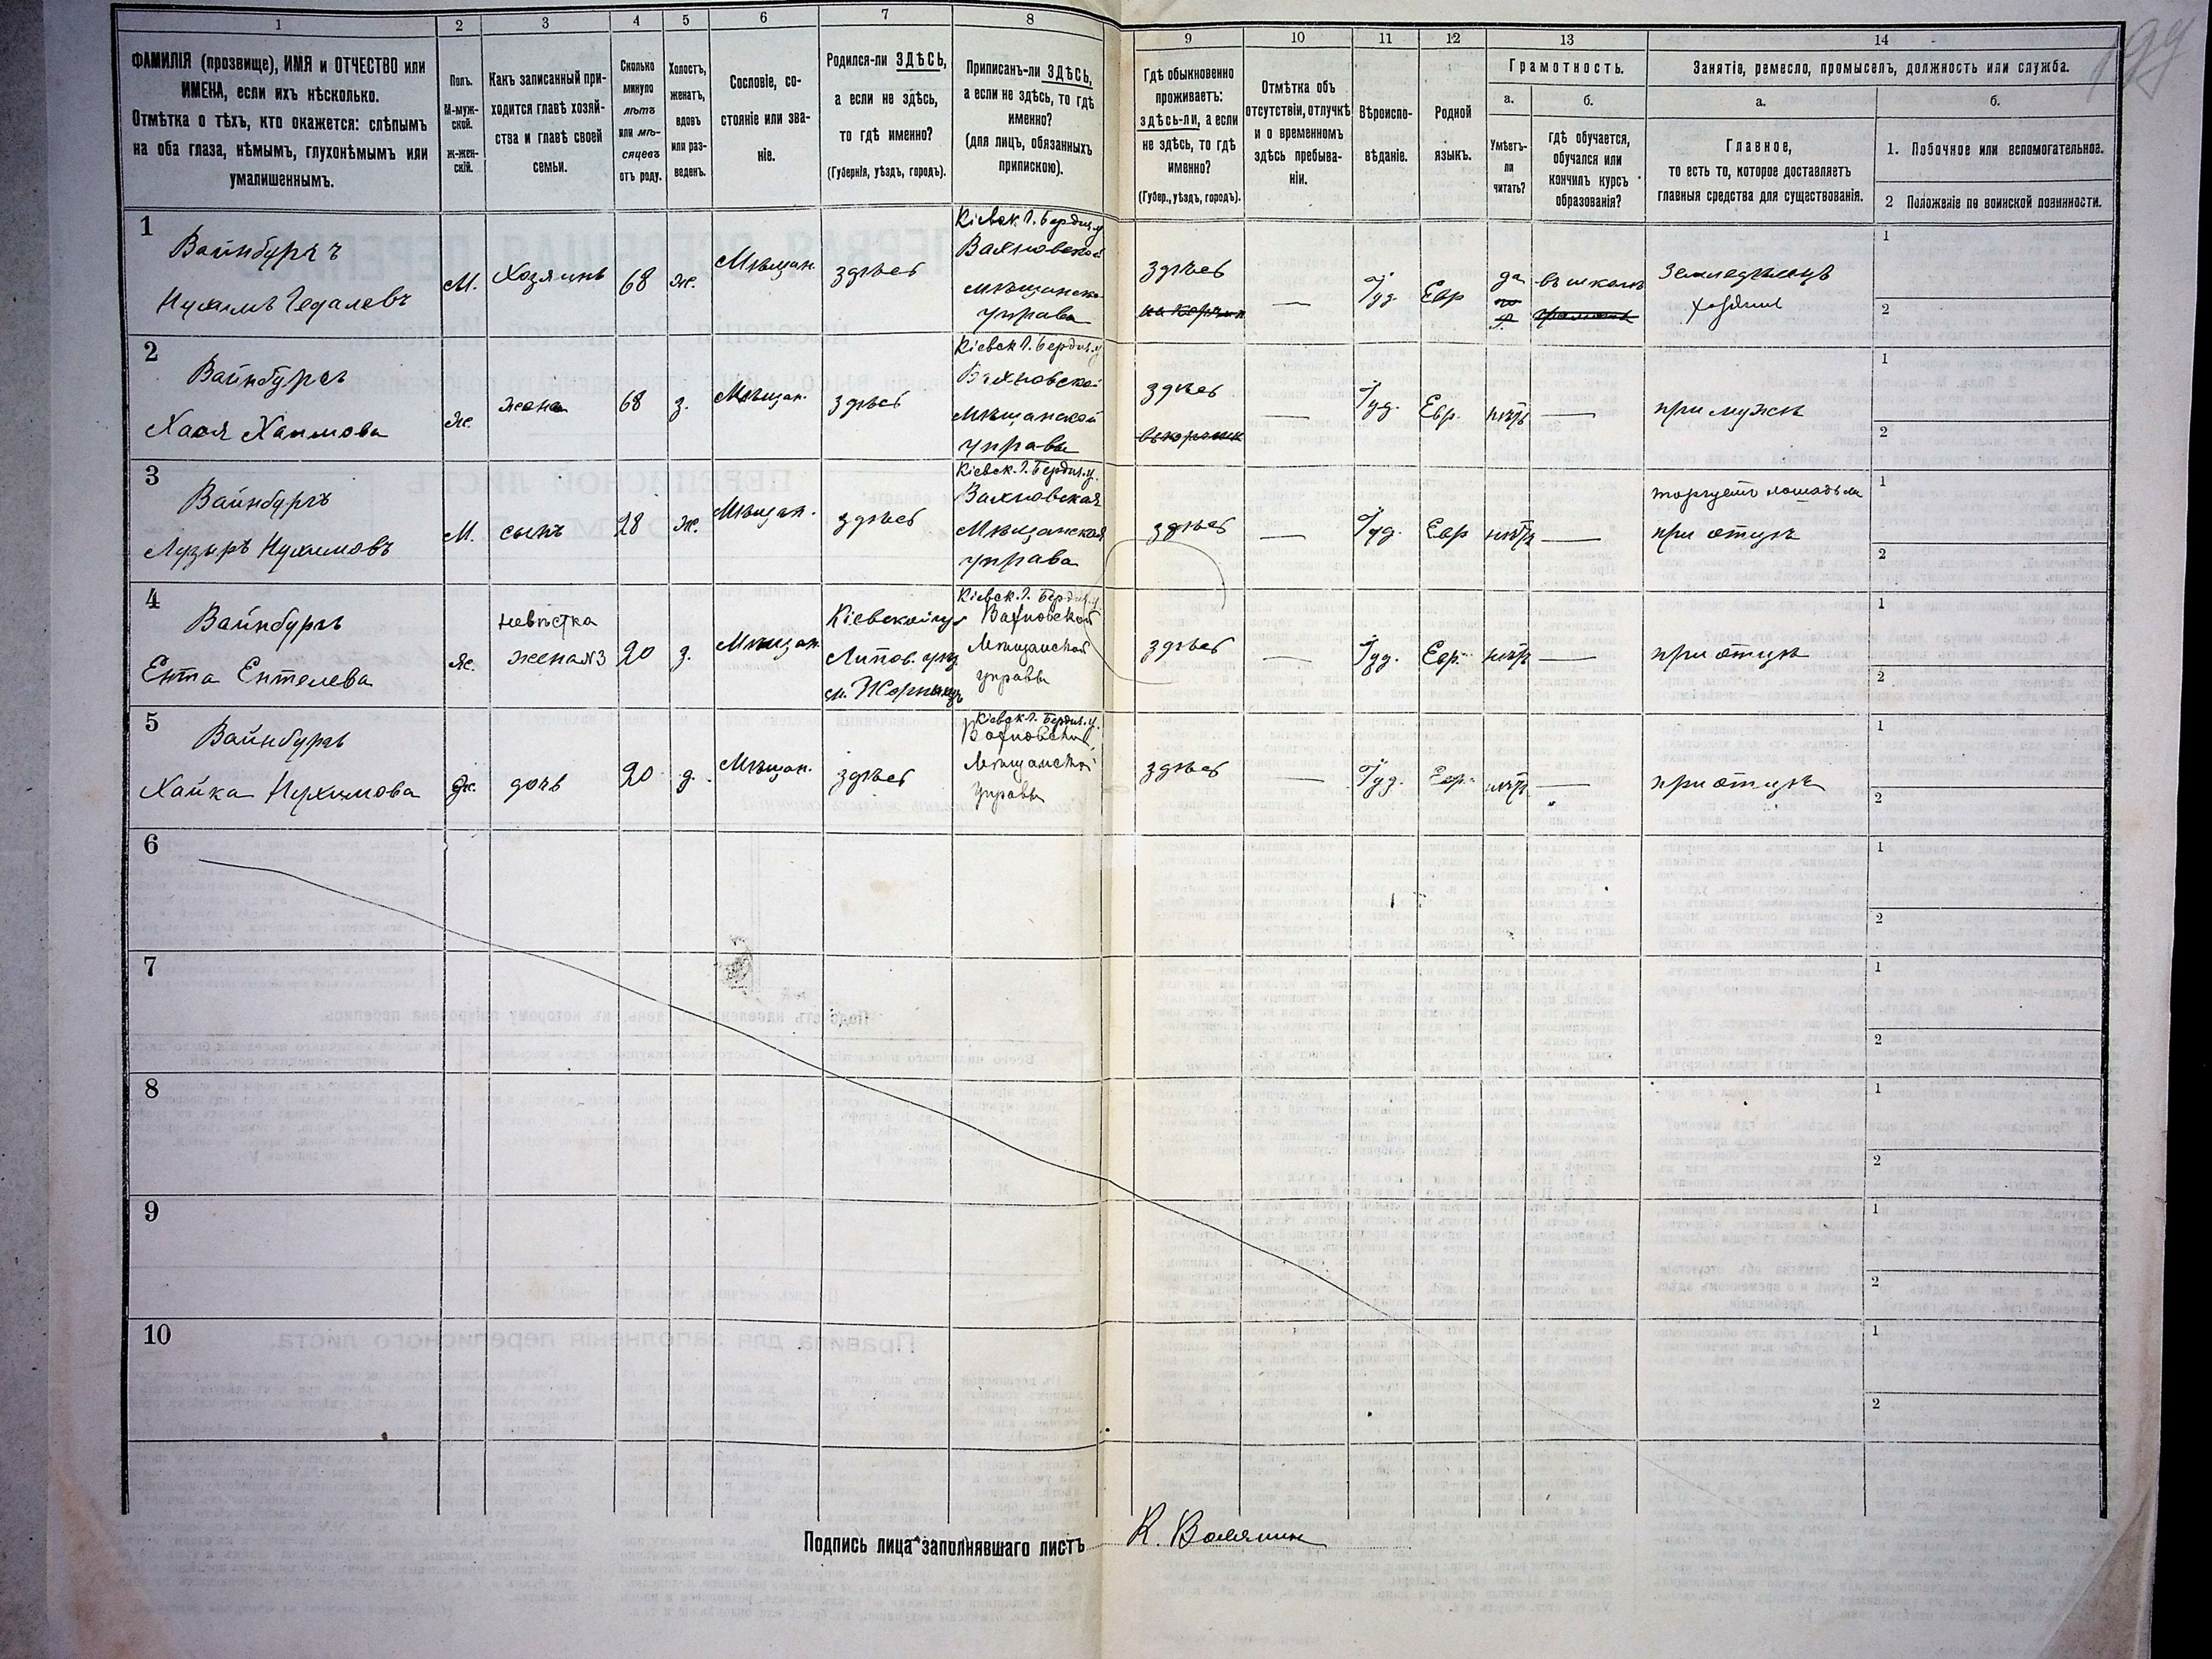 1 2 3 4 5 6 7 8 9 10 11 12 13 14
ФАМИЛІЯ (прозвище), ИМЯ и ОТЧЕСТВО или
ИМЕНА, если ихъ нѣсколько.
Отмѣтка о тѣхъ, кто окажется: слѣпымъ
на оба глаза, нѣмымъ, глухонѣмымъ или
умалишеннымъ.
Полъ.
М-муж-
ской.
ж-жен-
скій.
Какъ записанный при-
ходится главѣ хозяй-
ства и главѣ своей
семьи.
Сколько
минуло
лѣтъ
или мѣ-
сяцевъ
отъ роду.
Холостъ,
женатъ,
вдовъ
или раз-
веденъ.
Сословіе, со-
стояніе или зва-
ніе.
Родился-ли ЗДѢСЬ,
а если не здѣсь,
то гдѣ именно?
(Губернія, уѣздъ, городъ).
Приписанъ-ли ЗДѢСЬ,
а если не здѣсь, то гдѣ
именно?
(для лицъ, обязанныхъ
припискою).
Гдѣ обыкновенно
проживаетъ:
здѣсь-ли, а если
не здѣсь, то гдѣ
именно?
(Губер., уѣздъ, городъ).
Отмѣтка объ
отсутствіи, отлучкѣ
и о временномъ
здѣсь пребыва-
ніи.
Вѣроиспо-
вѣданіе.
Родной
языкъ.
Грамотность.
а.
Умѣетъ-
ли
читать?
б.
гдѣ обучается,
обучался или
кончилъ курсъ
образованія?
Занятіе, ремесло, промыселъ, должность или служба.
а.
Главное,
то есть то, которое доставляетъ
главныя средства для существованія.
б.
1. Побочное или вспомогательное.
2 Положеніе по воинской повинности.
1
Вайнбургъ
Нухимъ Гедалевъ
М.
Хозяинъ
68
ж.
Мѣщан.
здѣсь
Кіевск. Г. Бердич. у
Вахновской
Мѣщанско
управа
здѣсь
—
Іуд.
Евр
да
въ школѣ
Земледѣлецъ
Хозяинъ
1
2
2
Вайнбургъ
Хася Хаимова
ж.
жена
68
з.
Мѣщан.
здѣсь
Кіевск Г. Бердич. у
Вахновской
Мѣщанской
управы
здѣсь
—
Іуд.
Евр.
нѣтъ
—
при мужѣ
1
2
3
Вайнбургъ
Лузыръ Нухимовъ
М.
сынъ
28
ж.
Мѣщан.
здѣсь
Кіевск. Г. Бердич. у.
Вахновская
Мѣщанская
управа
здѣсь
—
Іуд.
Евр
нѣтъ
—
торгуетъ лошадьми
при отцѣ
1
2
4
Вайнбургъ
Ента Ентелева
ж.
невѣстка
жена №3
20
з.
Мѣщан.
Кіевской губ
Липов. уѣзд
м. Жорнищъ
Кіевск. Г. Бердич. у.
Вахновской
Мѣщанской
управы
здѣсь
—
Іуд.
Евр.
нѣтъ
—
при отцѣ
1
2
5
Вайнбургъ
Хайка Нухимова
ж.
дочь
20
д.
Мѣщан.
здѣсь
Кіевск Г. Бердич. у.
Вахновской
Мѣщанской
управы
здѣсь
—
Іуд.
Евр.
нѣтъ
—
при отцѣ
1
2
6
1
2
7
1
2
8
1
2
9
1
2
10
1
2
Подпись лица заполнявшаго листъ